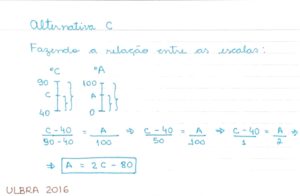 Alternativa C
Fazendo a relação entre as escalas:
°C °A
90 100
C A
40 0
C - 40 / 90 - 40 = A / 100 ⇒ C - 40 / 50 = A / 100 ⇒ C - 40 / 1 = A / 2 ⇒
⇒ A = 2C - 80
ULBRA 2016